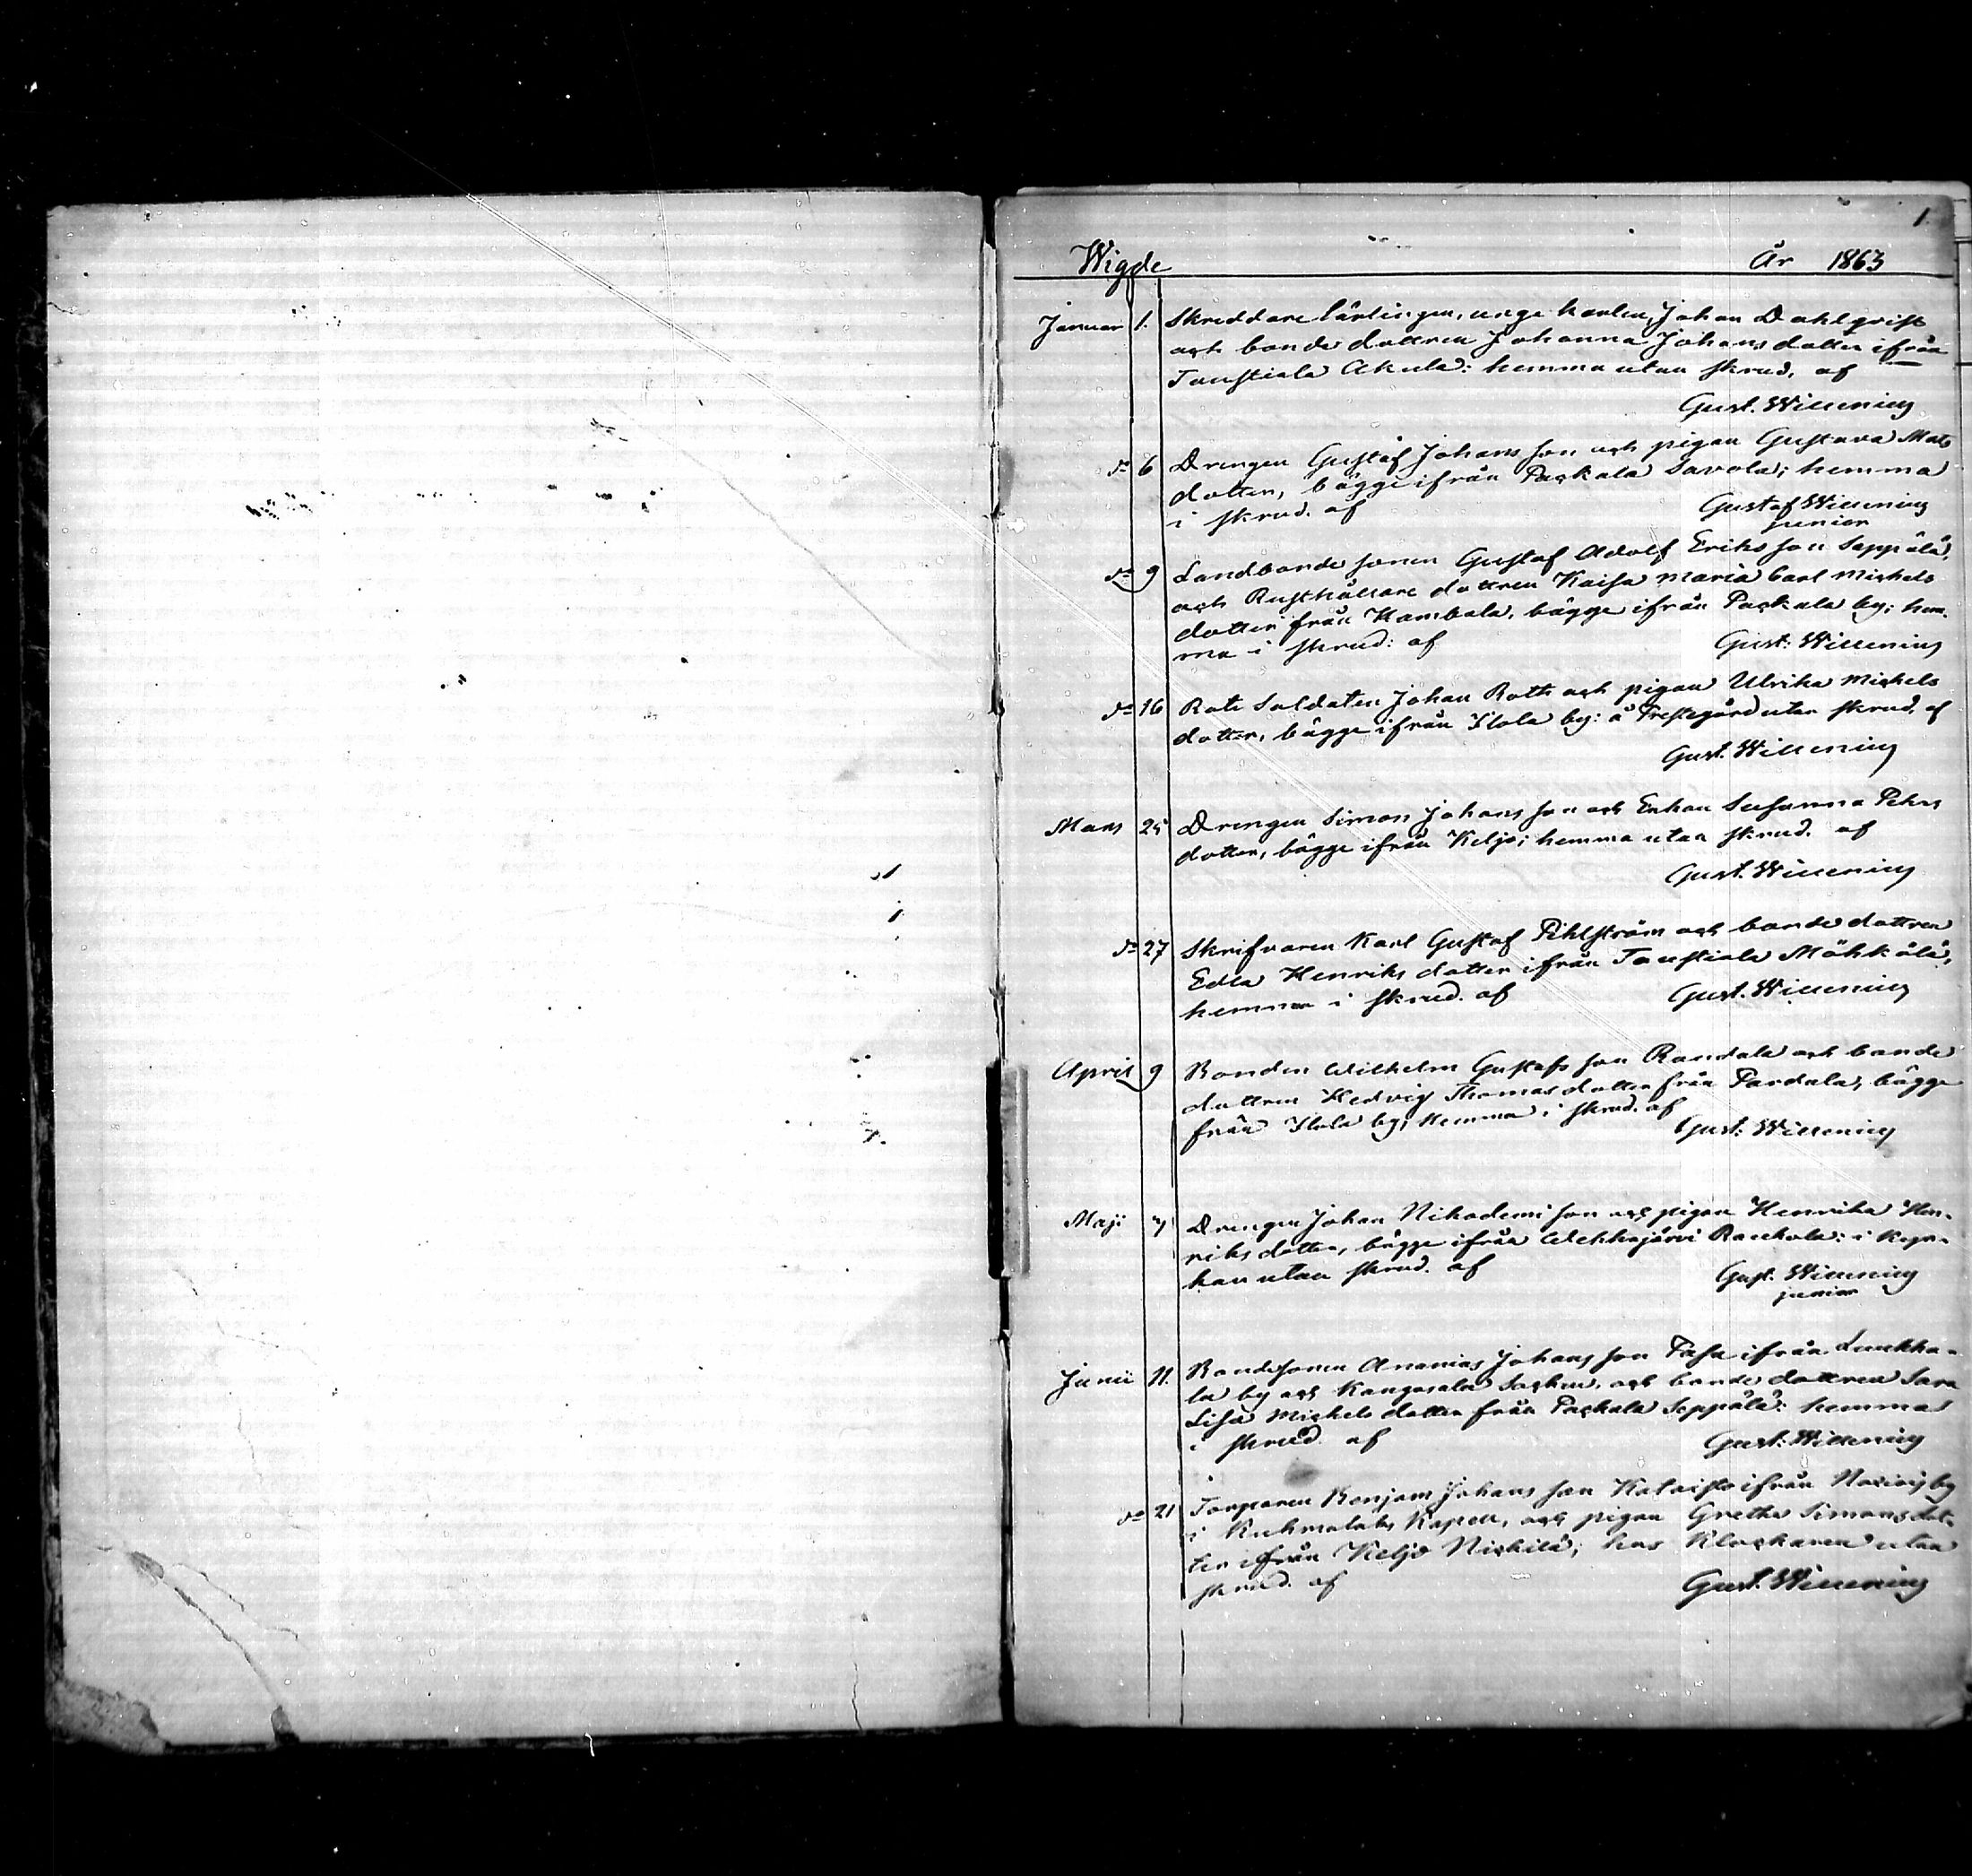 1.
Wigde År 1863
Januar 1. Skreddare lärlingen, unge karlen, Johan Dahlqvist
och bonde dottren Johanna Johansdotter ifrån
Taustiala Akula: hemma utan skrud, af
Gust. Willenius
do 6 Drengen Gustaf Johansson och pigan Gustava Mats
dotter, bägge ifrån Packala Savola; hemma
i skrud. af Gustaf Willenius
junior
do 9 Landbonde sonen Gustaf Adolf Eriksson Seppälä,
och Rusthållare dottren Kaisa Maria Carl Michels
dotter från Kambola, bägge ifrån Packala by; hem-
ma i skrud: af Gust: Willenius
do 16 Rote Soldaten Johan Roth och pigan Ulrika Michels
dotter, bägge ifrån Ilola by: å Prestegård utan skrud, af
Gust. Willenius
Mars 25 Drengen Simon Johansson och Enkan Susanna Pehrs
dotter, bägge ifrån Keljo; hemma utan skrud. af
Gust. Willenius
do 27 Skrifvaren Karl Gustaf Pihlström och bonde dottren
Edla Henriks dotter ifrån Taustiala Mähkälä;
hemma i skrud. af Gust. Willenius
April 9 Bonden Wilhelm Gustafsson Randala och bonde
dottren Hedvig Thomasdotter från Pardala, bägge
från Ilola by; hemma i skrud. af
Gust: Willenius
Maji 7 Drengen Johan Nikodemisson och pigan Henrika Hen-
riks dotter, bägge ifrån Wehkajärvi Rauhola: i Kyr-
kan utan skrud. af Gust. Willenius
junior
Junii 11. Bondesonen Ananias Johansson Pasa ifrån Luukka-
la by och Kangasala Socken, och bonde dottren Sara
Lisa Michels dotter från Packala Seppälä: hemma
i skrud. af Gust: Willenius
do 21 Torparen Benjam Johansson Kalaisto ifrån by
i Kuhmalahti Kapell, och pigan Gretha Simonsdot-
ter ifrån Keljo Nickilä; hos Klockaren utan
skrud. af Gust. Willenius